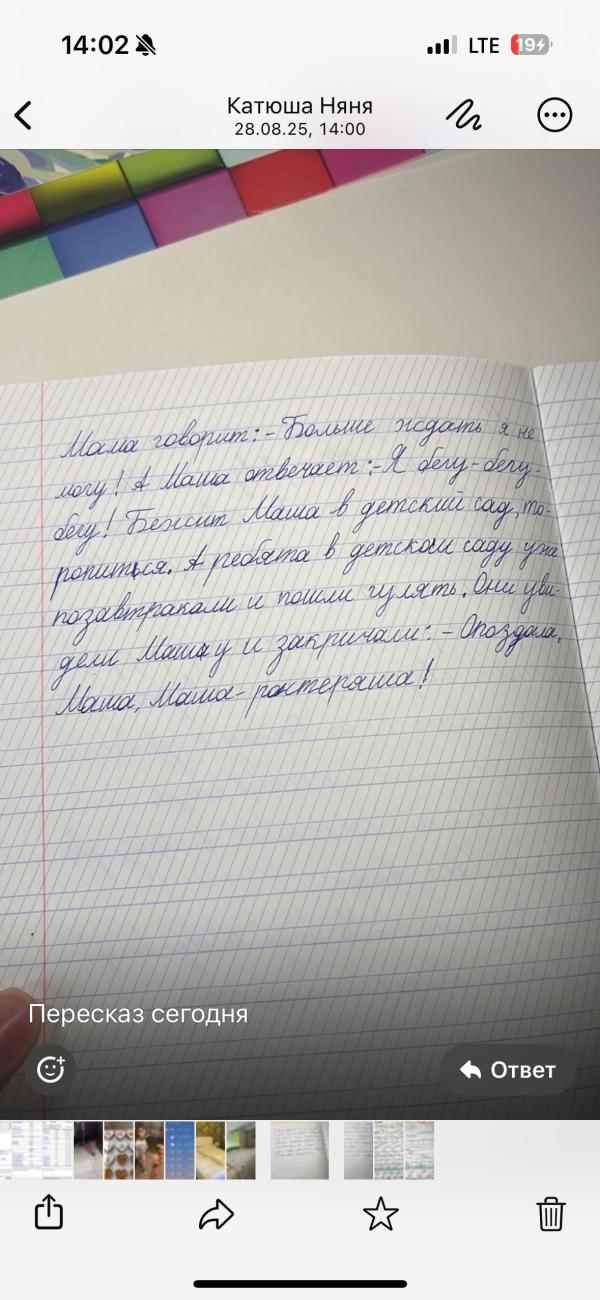 14:02
LTE
19
Катюша Няня
28.08.25, 14:00
Мама говорит: - Больше ждать я не
могу! А Маша отвечает: - Я бегу-бегу-
бегу! Бежит Маша в детский сад, то-
ропиться. А ребята в детском саду уже
позавтракали и пошли гулять. Они уви-
дели Машу и закричали: - Опоздала,
Маша, Маша-растеряша!
Пересказ сегодня
Ответ